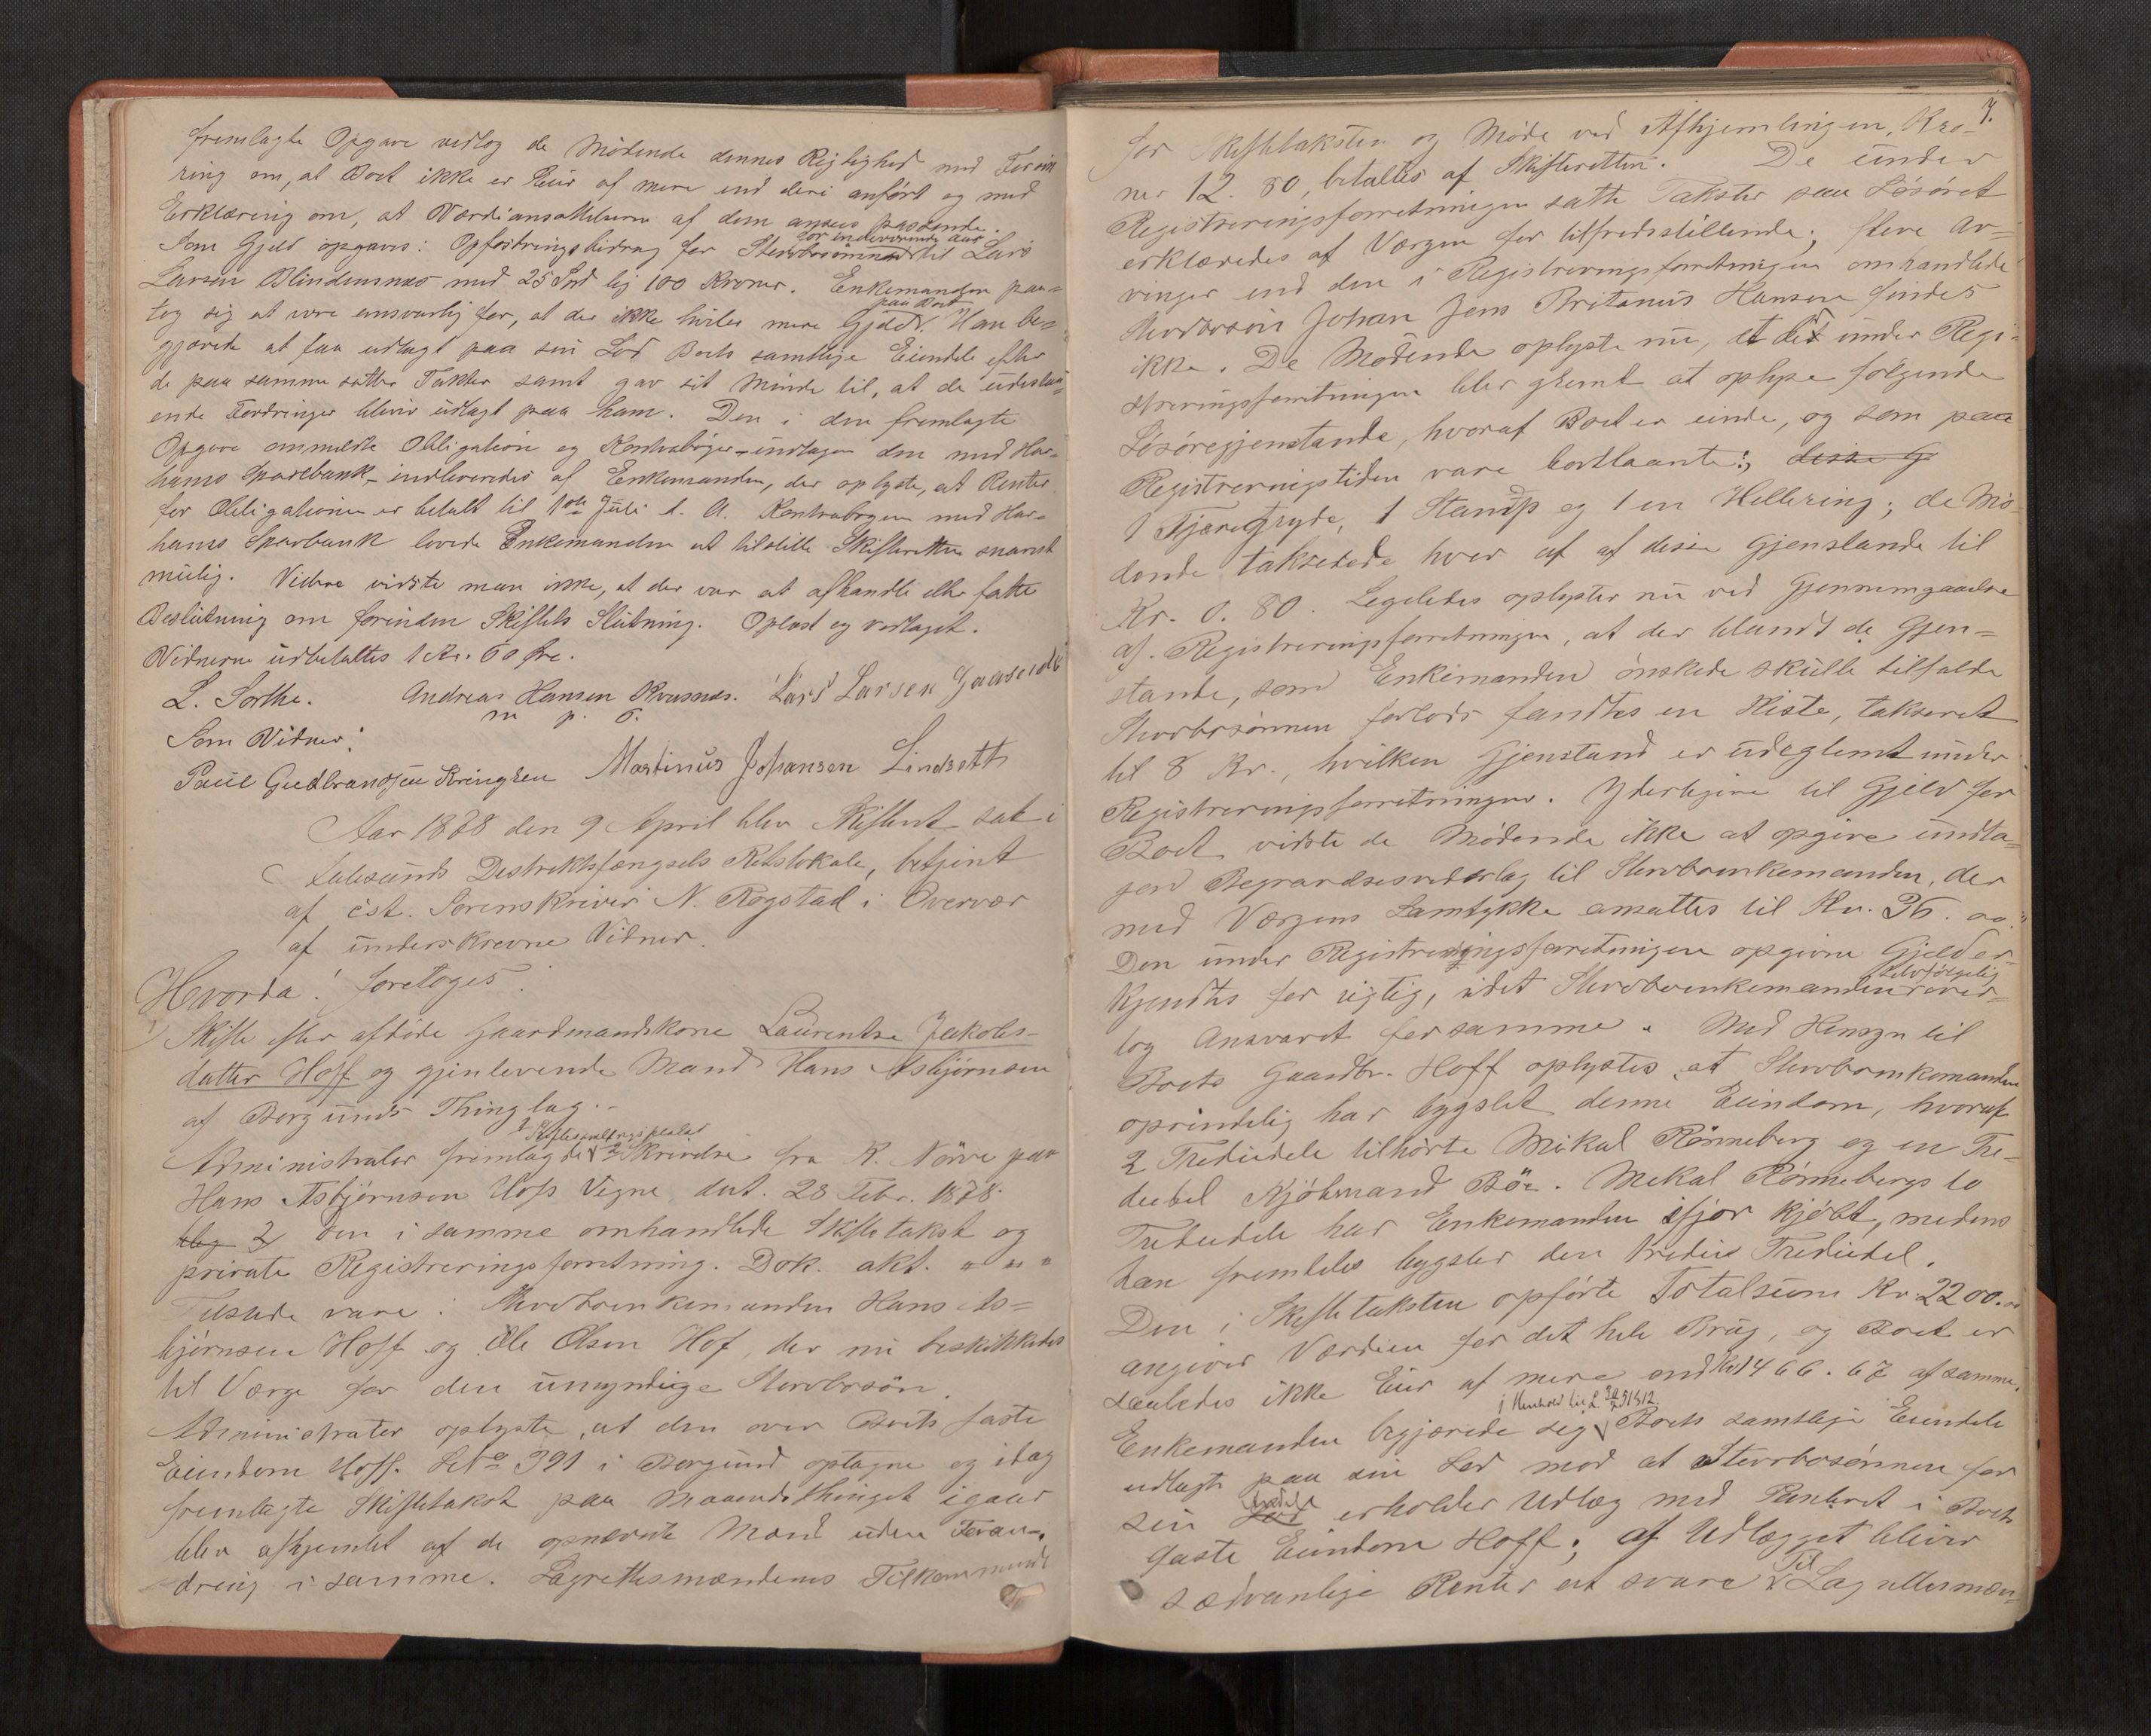 fremlagte Opgave vedtog de Mödende dennes Rigtighed med Forsik
ring om, at Boet ikke er Eier af mere end deri anfört og med
Erklæring om, at Værdiansættelserne af dem ansees passende.
for indeværende Aar
Som Gjeld opgaves: Opfostringsbidrag for Stervbosönnen til Lars
Larsen Blindemnæs med 25 Spd lig 100 Kroner. Enkemanden paa-
paa Boet
tog sig at være ansvarlig for, at der ikke hviler mere Gjeld. Han be-
gjærede at faa udlagt paa sin Lod Boets samtlige Eiendele efter
de paa samme satte Takster samt gav sit Minde til, at de udestaa-
ende Fordringer bliver udlagt paa ham. Den i den fremlagte
Opgave ommeldte Obligation og Kontrabøger - undtagen den med Har-
hams Sparebank - indleveredes af Enkemanden, der oplyste, at Renter
for Obligationen er betalt til 1ste Juli d. A. Kontrabogen med Har-
hams Sparbank lovede Enkemanden at tilstille Skifteretten snarest
mulig. Videre vidste man ikke, at der var at afhandle eller fatte
Beslutning om forinden Skiftets Slutning. Oplæst og vedtaget.
Vidnerne udbetaltes 1 Kr. 60 Øre.
L. Sorthe. Andreas Hansen Kvasnes. Lars Larsen Gaaseide
m. p. P.
Som Vidner:
Paul Gudbrandsen Kringsen Martinus Johansen Lindseth
Aar 1878 den 9 April blev Skifteret sat i
Aalesunds Destriktsfængsels Retslokale, betjent
af cst. Sorenskriver N. Rogstad i Overvær
af underskrevne Vidner.
Hvorda! foretoges:
1) Skifte efter afdöde Gaardmandskone Laurentse Jakobs-
datter Hoff og gjenlevende Mand Hans Asbjörnsen
af Borgunds Thinglag.-
Administrator fremlagde Skrivelse fra K. Nörve paa
Hans Asbjörnsen Hofs Vegne dat. 28 Febr. 1878.
2) den i samme omhandlede Skiftetakst og
private Registreringsforretning. Dok. akt. " " "
Tilstede vare: Stervboenkemanden Hans As-
bjørnsen Hoff og Ole Olsen Hof, der nu beskikkedes
til Værge for den umyndige Stervbosön.
Administrator oplyste, at den over Boets faste
Eiendom Hoff. L.No 391 i Borgund optagne og idag
fremlagte Skiftetakst paa Maanedsthinget igaar
blev afhjemlet af de opnævnte Mænd uden Foran-
dring i samme. Lagrettesmændenes Tilkommende
7.
for Skiftetaksten og Möde ved Afhjemlingen, Kro-
ner 12. 80, betaltes af Skifteretten. De under
Registreringsforretningen satte Takster paa Lösöret
erklæredes af Værgen for tilfredsstillende; flere Ar-
vinger end den i Registreringsforretningen omhandlede
Stervbosön Johan Jens Britanus Hansen findes
ikke. De Mödende oplyste nu, at det under Regi-
streringsforretningen blev glemt at oplyse følgende
Lösöregjenstande, hvoraf Boet er eiende, og som paa
Registreringstiden vare bortlaante: disse G
1 Tjæregryde, 1 Stamp og 1 en Hellering; de Mö-
dende takserede hver af af disse Gjenstande til
Kr. 0. 80. Ligeledes oplystes nu ved Gjennemgaaelse
af Registreringsforretningen, at der blandt de Gjen-
stande, som Enkemanden önskede skulle tilfalde
Stervbosönnen forlods fandtes en Kiste, takseret
til 8 Kr., hvilken Gjenstand er udeglemt under
Registreringsforretningen. Yderligere til Gjeld for
Boet vidste de Mödende ikke at opgive undta-
gen Begravelsesvederlag til Stervboenkemanden, der
med Værgens Samtykke ansattes til Kr. 36. oo.
Den under Registreringsforretningen opgivne Gjeld er-
selvfølgelig
kjendtes for rigtig, idet Stervboenkemanden over-
tog Ansvaret for samme. Med Hensyn til
Boets Gaardbr. Hoff oplystes, at Stervboenkemanden
oprindelig har bygslet denne Eiendom, hvoraf
2 Trediedele tilhörte Mikal Rönneberg og en Tre-
diedel Kjöbmand Böe. Mikal Rönnebergs to
Trediedele har Enkemanden ifjor kjöbt, medens
han fremdeles bygsler den tredie Trediedel.
Den i Skiftetaksten opförte Totalsum Kr 2200. oo
angiver Værdien for det hele Brug, og Boet er
saaledes ikke Eier af mere end Kr 1466. 67 af samme.
Enkemanden begjærede sig Boets samtlige Eiendele
udlagt paa sin Lod mod at Stervbosönnen for
sin Lod erholder Udlæg med Panteret i Boets
faste Eiendom Hoff; af Udlægget bliver
Til
sædvanlige Renter at svare Lagrettesmæn-